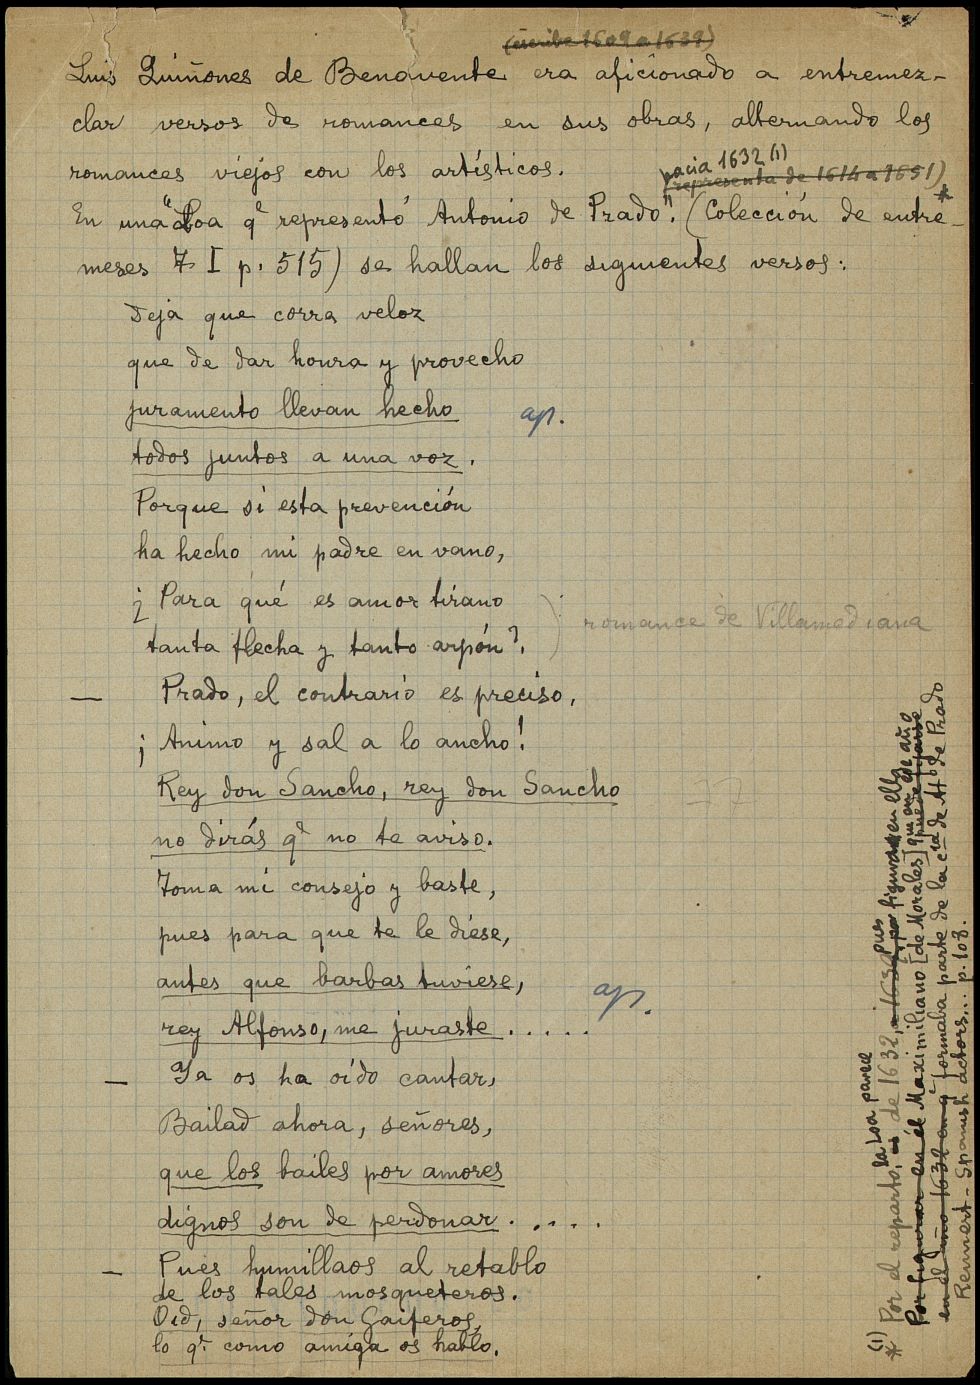 (escribe 1609 a 1639)
Luis Quiñones de Benavente era aficionado a entremez-
clar versos de romances en sus obras, alternando los
romances viejos con los artísticos.
hacia 1632 (1)
representa de 1614 a 1651)
En una "Loa q.e representó Antonio de Prado". (Colección de entre-
meses T I p. 515) se hallan los siguientes versos:
Deja que corra veloz
que de dar honra y provecho
juramento llevan hecho
ap.
todos juntos a una voz.
Porque si esta prevención
ha hecho mi padre en vano,
¿Para qué es amor tirano
tanta flecha y tanto arpón?
romance de Villamediana
— Prado, el contrario es preciso,
¡Animo y sal a lo ancho!
Rey don Sancho, rey don Sancho
no dirás q.e no te aviso.
Toma mi consejo y baste,
pues para que te le diese,
antes que barbas tuviese,
ap.
rey Alfonso, me juraste .....
— Ya os ha oído cantar,
Bailad ahora, señores,
que los bailes por amores
dignos son de perdonar .....
— Pues humillaos al retablo
de los tales mosqueteros.
Oid, señor don Gaiferos,
lo q.e como amiga os hablo.
(1)
* Por el reparto, la Loa parece de 1632, pues figuran en ella
Por figurar en él Maximiliano [de Morales] que en ese año
en el año 1632 en q.e formaba parte de la c.ia de At.o de Prado
Rennert - Spanish actors... p. 108.